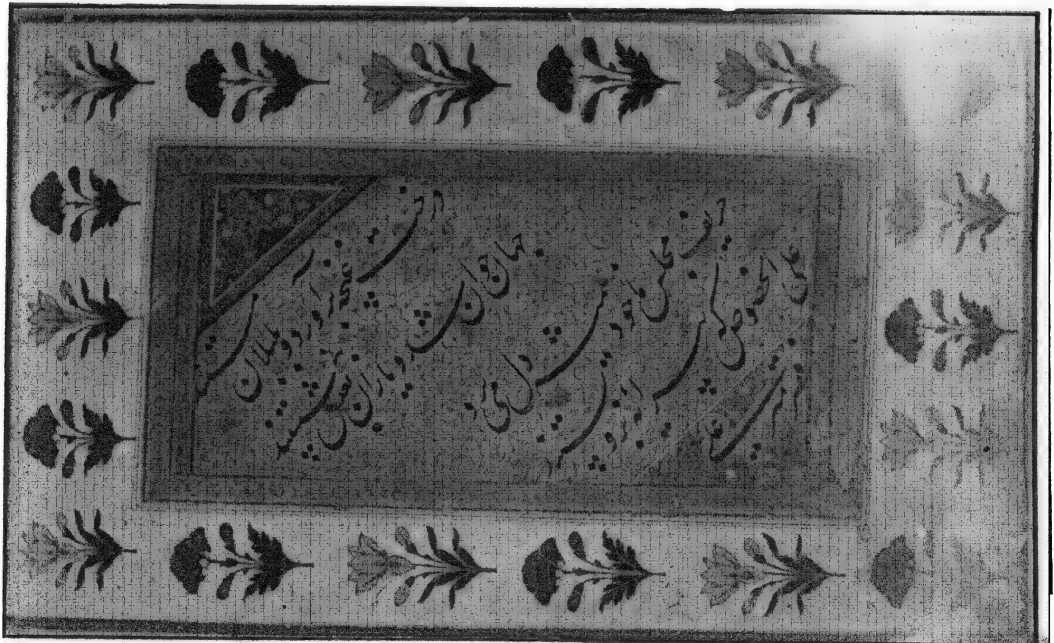 درخت غنچه برآورد و بلبلان مستند
جهان جوان شد و یاران بعیش بنشستند
حریف مجلس ما خود همیشه دل می برد
علی الخصوص که پیرایه برو بستند